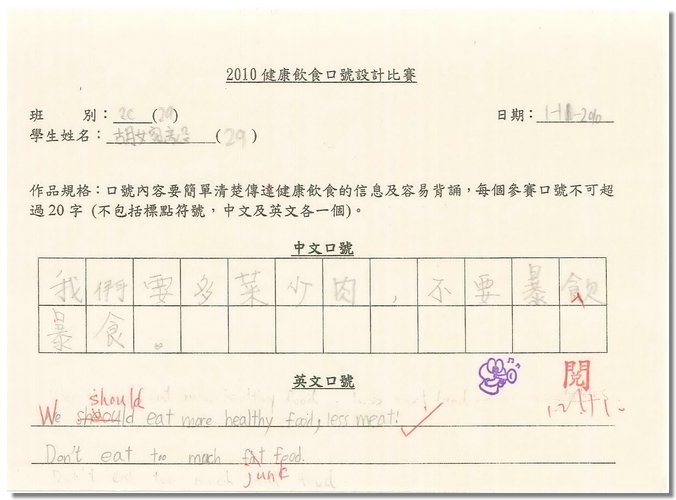 2010 健康飲食口號設計比賽
班 別：2C (29) 日期：1-11-2010
學生姓名： (29)
作品規格：口號內容要簡單清楚傳達健康飲食的信息及容易背誦，每個參賽口號不可超
過20字 (不包括標點符號，中文及英文各一個)。
中文口號
我們要多菜少肉，不要暴飲
暴食。
英文口號
閱
should
We shoould eat more healthy food, less meat!
Don't eat too much fat food.
junk